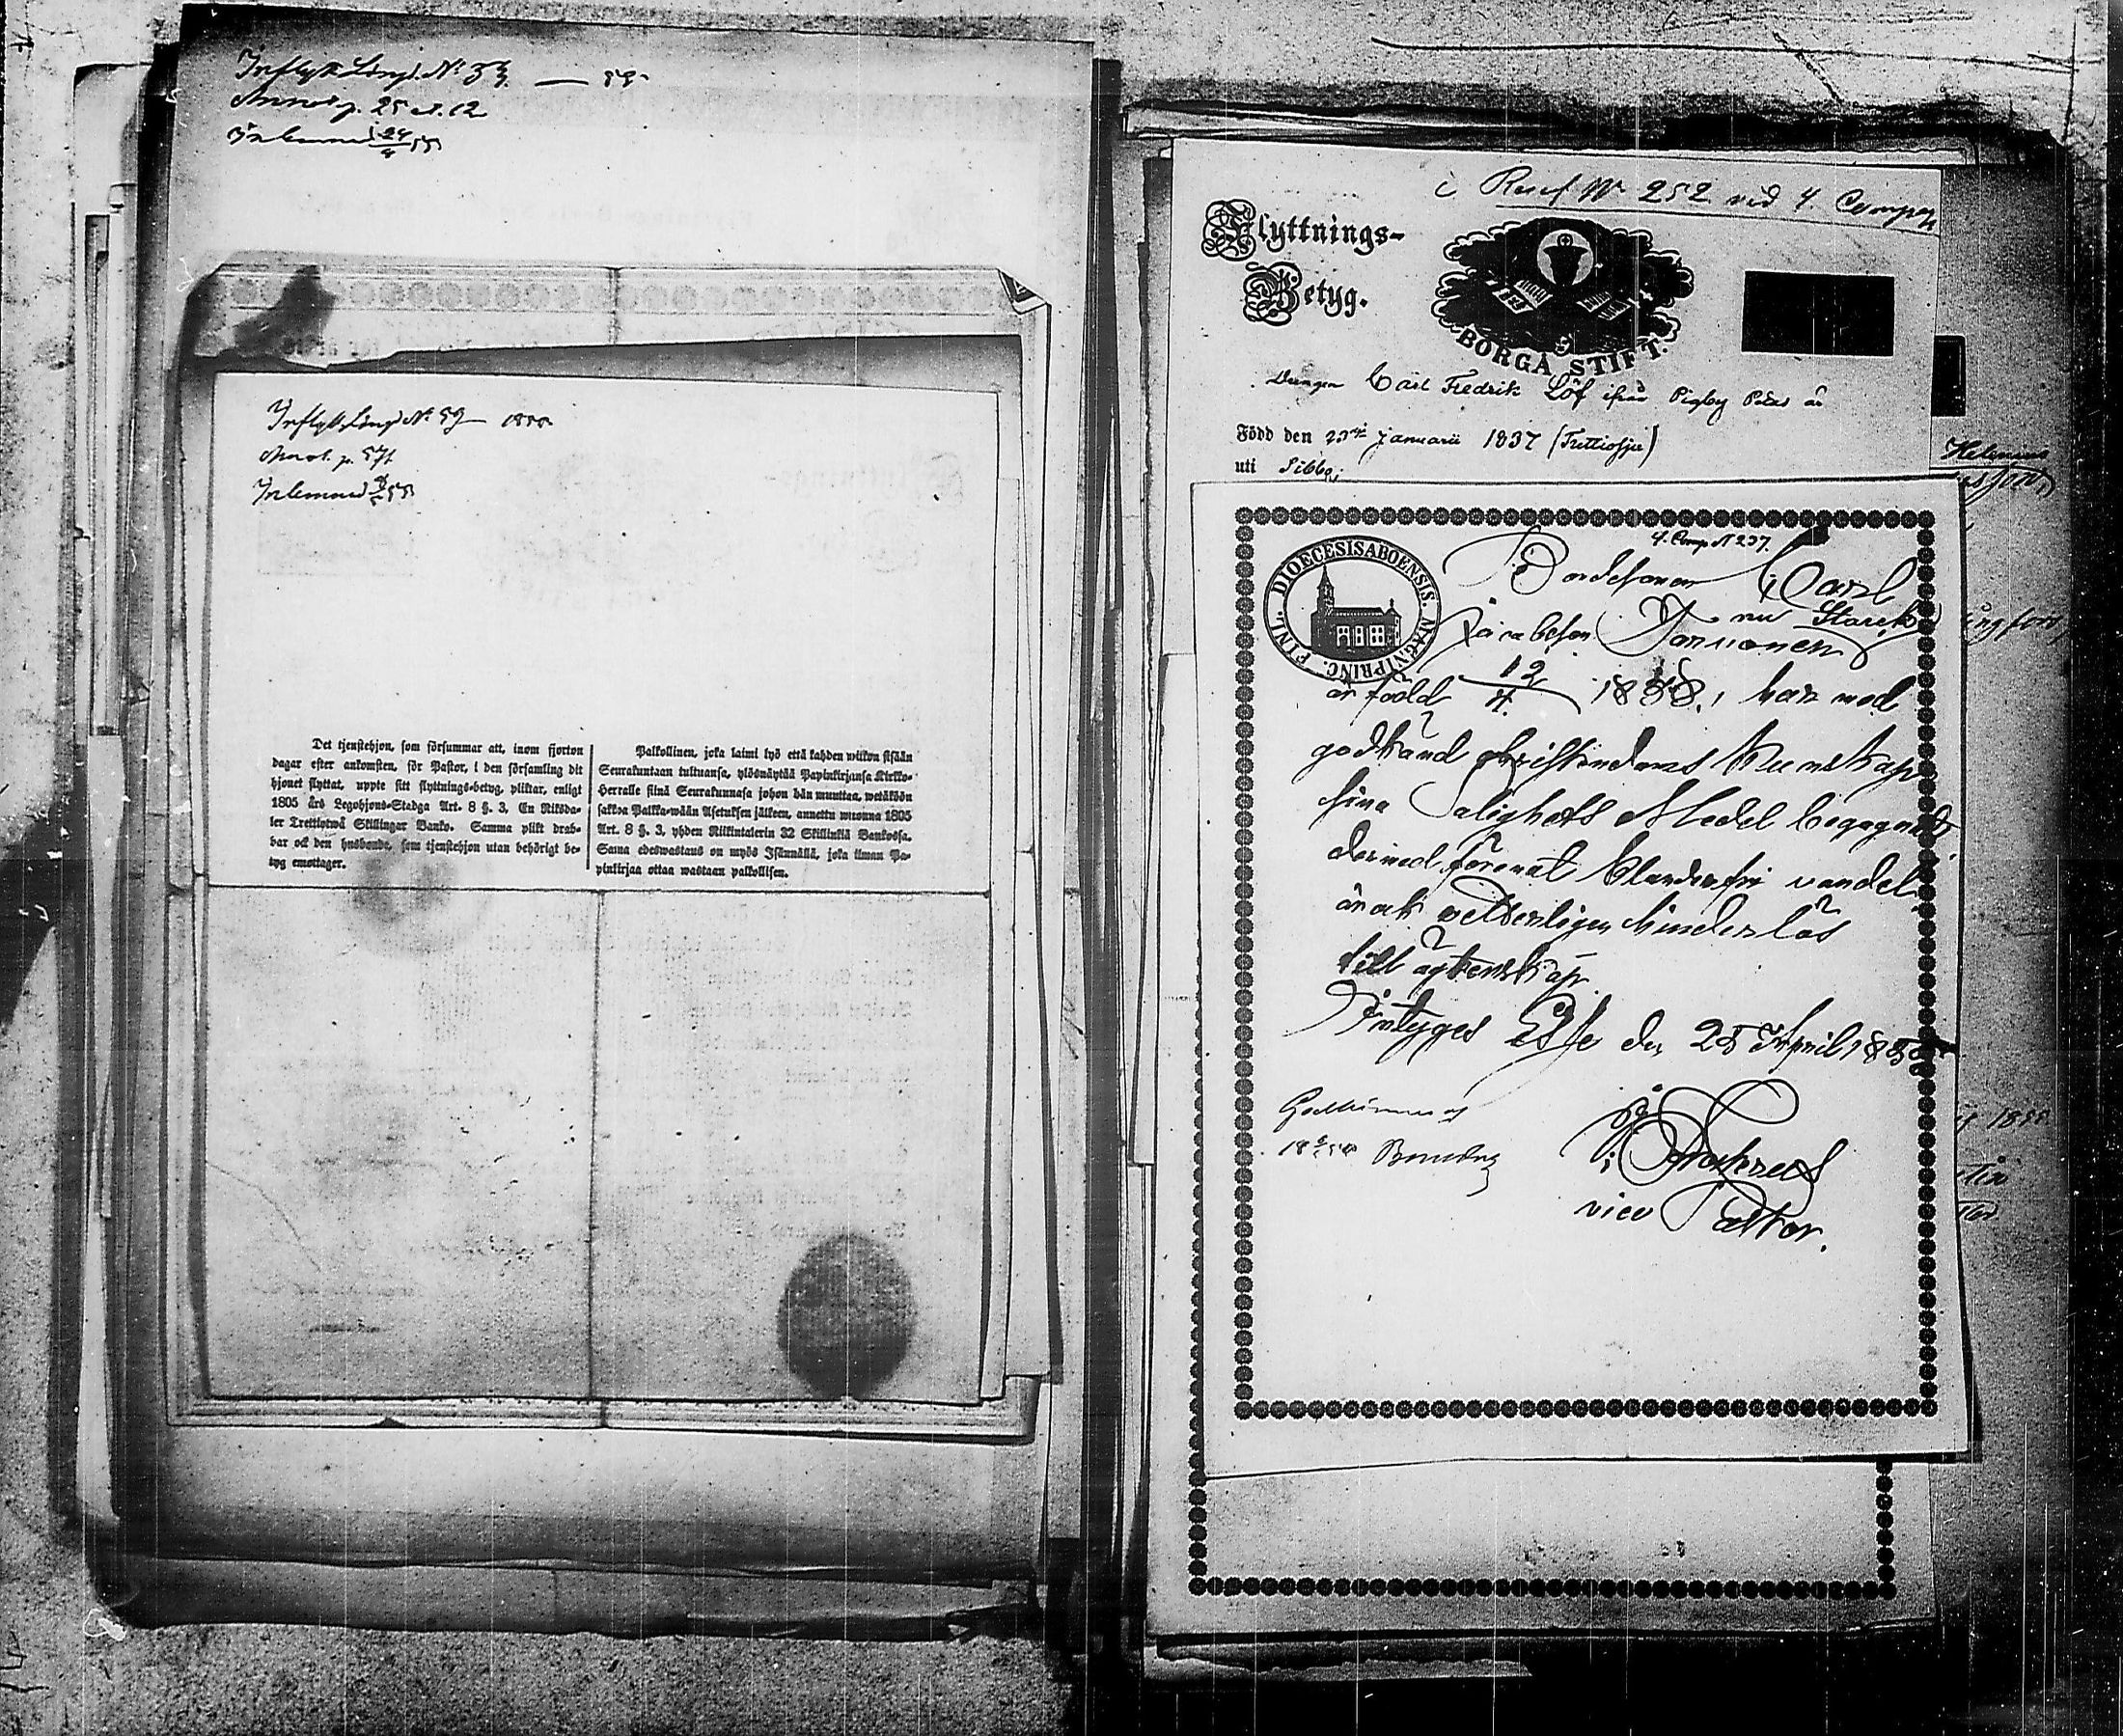 Inflytt. Längd. No 34 — 55
Annot p. 25 et. 12
Inlemnad 24/4 55
Inflytt. Längd No 59 — 1855
Annot. p. 571
Inlemnad
Det tjenstehjon, som försummar att, inom fjorton
dagar efter ankomsten, för Pastor, i den församling dit
hjonet flyttat, uppte sitt flyttnings-betyg, pliktar, enligt
1805 års Legohjons-Stadga Art. 8 §. 3, En Riksda-
ler Trettiotwå Skillingar Banko. Samma plikt drab-
bar ock den husbonde, som tjenstehjon utan behörigt be-
tyg emottager.
Palkollinen, joka laimi lyö että kahden wiikon sisään
Seurakuntaan tultuansa, ylösnäytää Papinkirjansa Kirkko-
Herralle siinä Seurakunnasa johon hän muuttaa, wetäköön
sakkoa Palkka-wään Asetuksen jälkeen, annettu wuonna 1805
Art. 8 §. 3, yhden Riikintalerin 32 Skillinkiä Bankossa.
Sama edeswastaus on myös Isännällä, joka ilman Pa-
pinkirjaa ottaa wastaan palkollisen.
i Ruel No 252 vid 4 Compag
Flyttnings-
Betyg.
BORGÅ STIFT.
Drengen Carl Fredrik Löf ifrån Pigby är
Född den 23 Januarii 1837 (Trettiosju)
uti Sibbo
4. Comp N 237.
FINL. DIOECESISABOENSIS. MAGNIPRINC.
Bondesonen Carl
nu Starck
är född 12/4 18 , har med
godkänd christendoms kunskap
sina Salighets Medel begagnat
dermed förenat klanderfri vandel
är ock vetterligen hinderlös
till äktenskap
Intyges Esse den 25 April 18
vice Pastor.